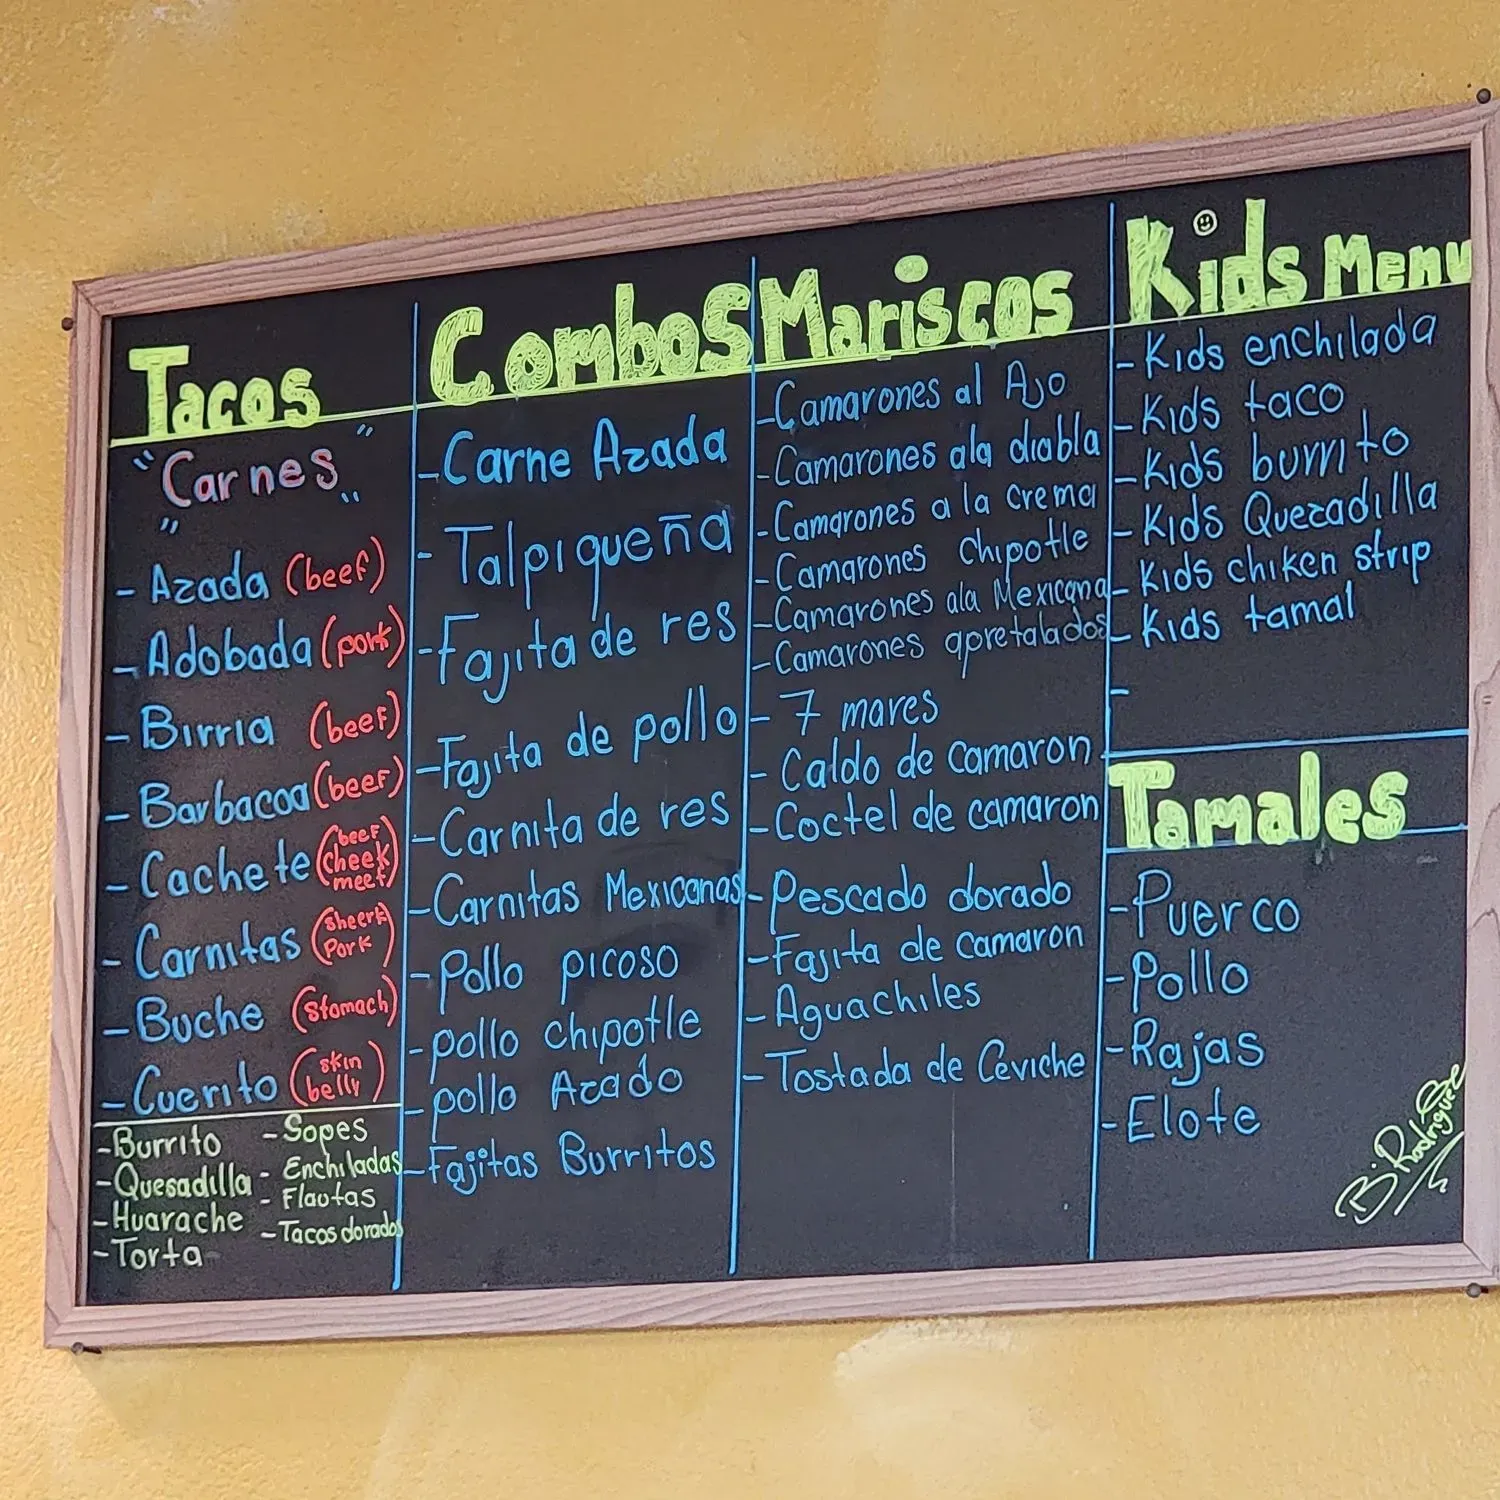 Tacos
"Carnes"
- Azada (beef)
- Adobada (pork)
- Birria (beef)
- Barbacoa (beef)
- Cachete (beef cheek meet)
- Carnitas (sheerk Pork)
- Buche (stomach)
- Cuerito (skin belly)
- Burrito
- Quesadilla
- Huarache
- Torta
- Sopes
- Enchiladas
- Flautas
- Tacos dorados
Combos
- Carne Azada
- Talpiqueña
- Fajita de res
- Fajita de pollo
- Carnita de res
- Carnitas Mexicanas
- Pollo picoso
- pollo chipotle
- pollo Azado
- Fajitas Burritos
Mariscos
- Camarones al Ajo
- Camarones ala diabla
- Camarones a la crema
- Camarones chipotle
- Camarones ala Mexicana
- Camarones apretalados
- 7 mares
- Caldo de camaron
- Coctel de camaron
- Pescado dorado
- Fajita de camaron
- Aguachiles
- Tostada de Ceviche
Kids Menu
- Kids enchilada
- Kids taco
- Kids burrito
- Kids Quezadilla
- Kids chiken strip
- Kids tamal
-
Tamales
- Puerco
- Pollo
- Rajas
- Elote
B. Rodriguez